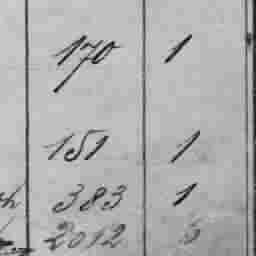 170 1
151 1
383 1
2012